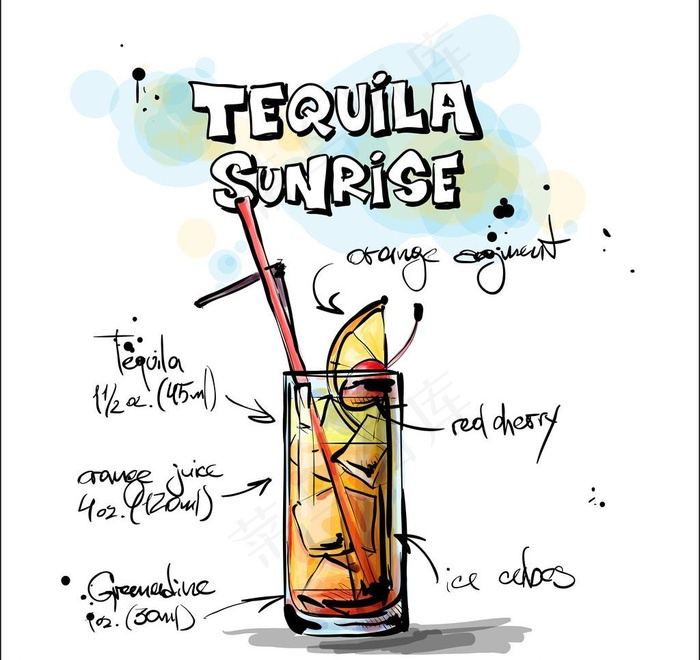 TEQUILA
SUNRISE
orange segment
Tequila
1 1/2 oz. (45ml)
red cherry
orange juice
4 oz. (120ml)
ice cubes
Grenadine
1oz. (30ml)